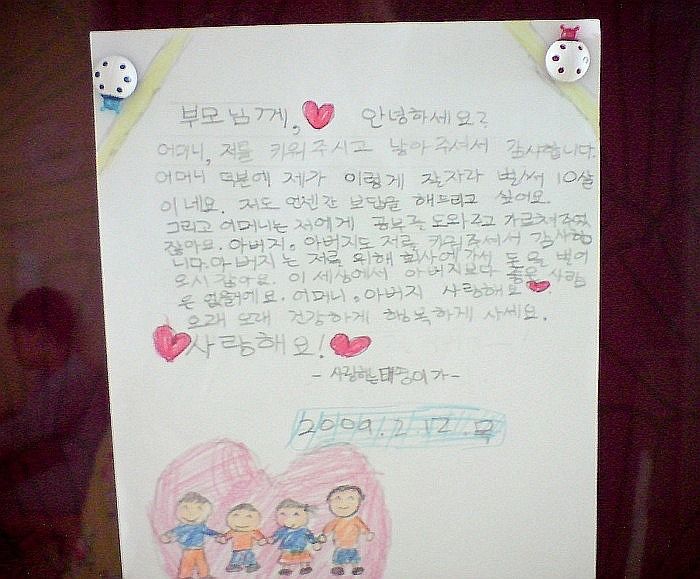 부모님께, 안녕하세요?
어머니, 저를 키워주시고 낳아 주셔서 감사합니다.
어머니 덕분에 제가 이렇게 잘자라 벌써 10살
이네요. 저도 언젠간 보답을 해드리고 싶어요.
그리고 어머니는 저에게 공부를 도와주고 가르쳐주었
잖아요. 아버지, 아버지도 저를 키워주셔서 감사합
니다. 아버지는 저를 위해 회사에 가서 돈을 벌어
오시잖아요. 이 세상에서 아버지보다 좋은 사람
은 없을거에요. 어머니, 아버지 사랑해요
오래 오래 건강하게 행복하게 사세요.
사랑해요!
- 사랑하는 이가 -
2009. 2. 12. 목